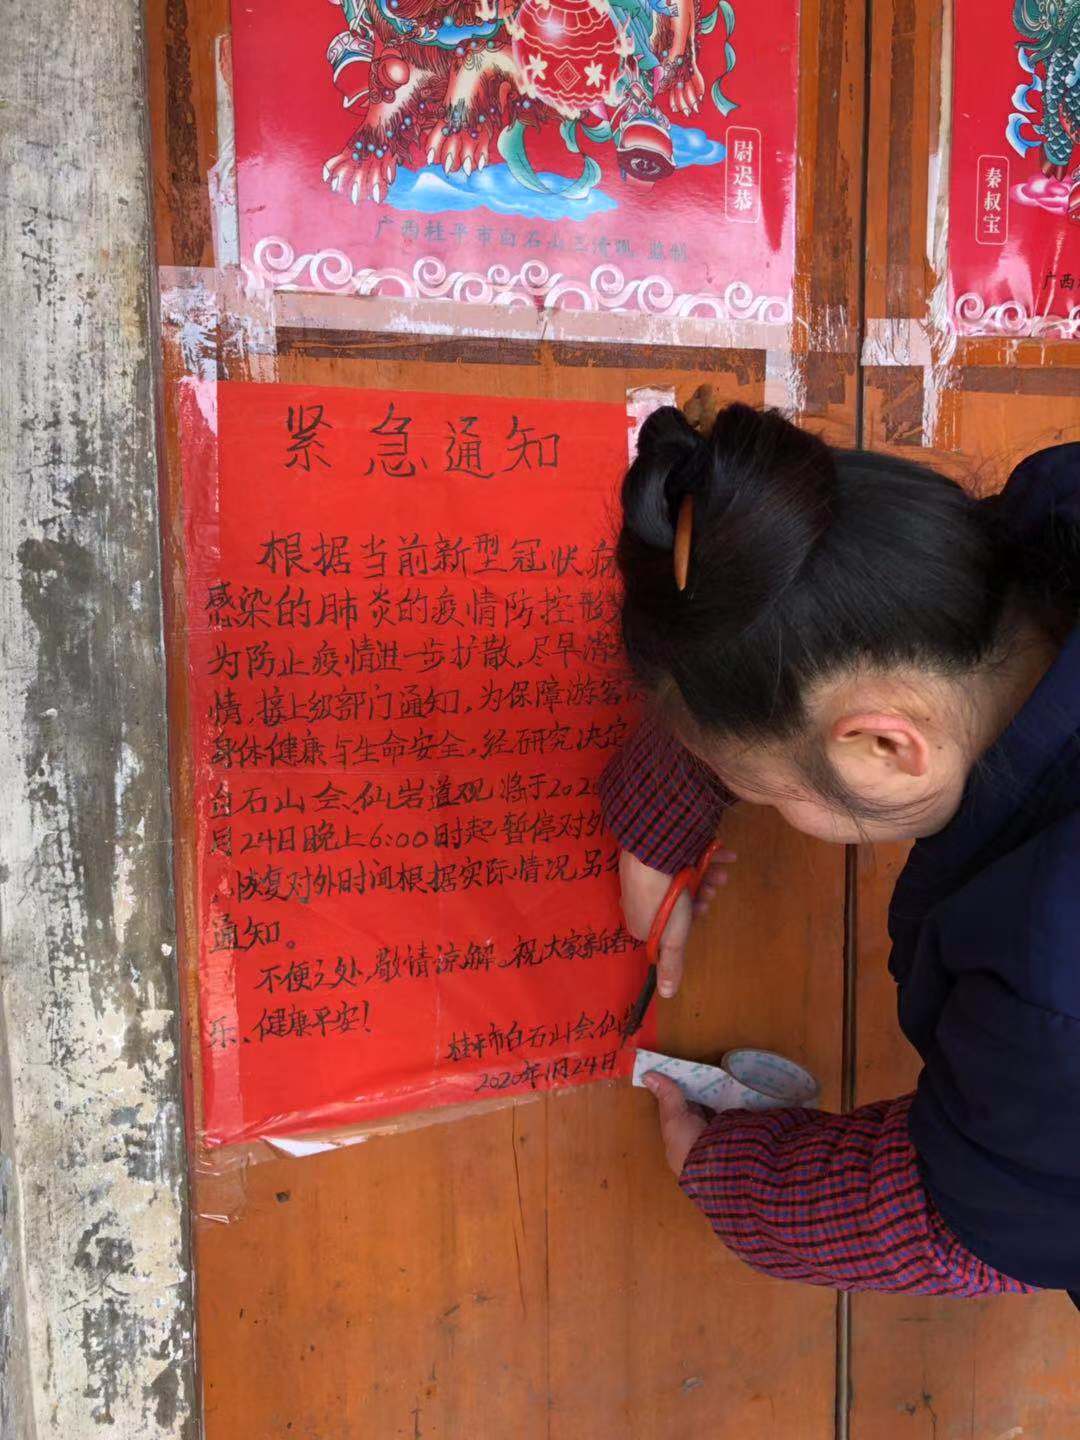 尉迟恭
秦叔宝
广西桂平市白石山三清观 监制
广西
紧急通知
根据当前新型冠状病
感染的肺炎的疫情防控形
为防止疫情进一步扩散,尽早消
情,接上级部门通知,为保障游客
身体健康与生命安全,经研究决定
白石山会仙岩道观将于2020
月24日晚上6:00时起暂停对外
,恢复对外时间根据实际情况,另
通知。
不便之处,敬情谅解。祝大家新春
乐、健康平安!
桂平市白石山会仙岩
2020年1月24日